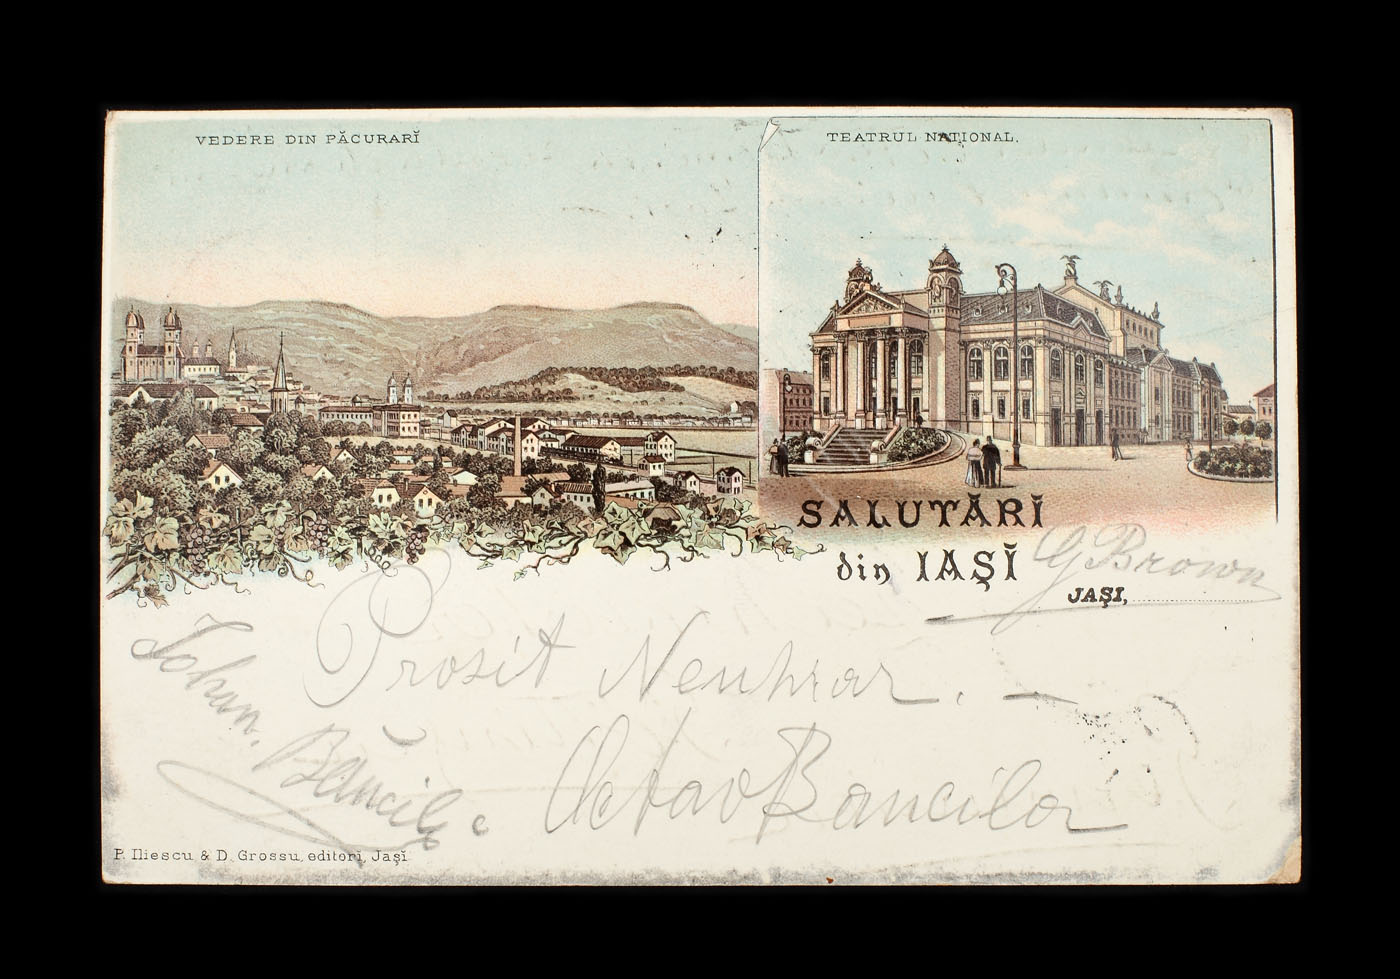 VEDERE DIN PĂCURARĬ
TEATRUL NAȚIONAL.
SALUTĂRĬ
din IAŞĬ
JAŞI,
G Brown
Prosit Neuhrar.
Johan. Băncilă
Octav Bancila
P. Iliescu & D. Grossu, editorĭ, Jaşĭ